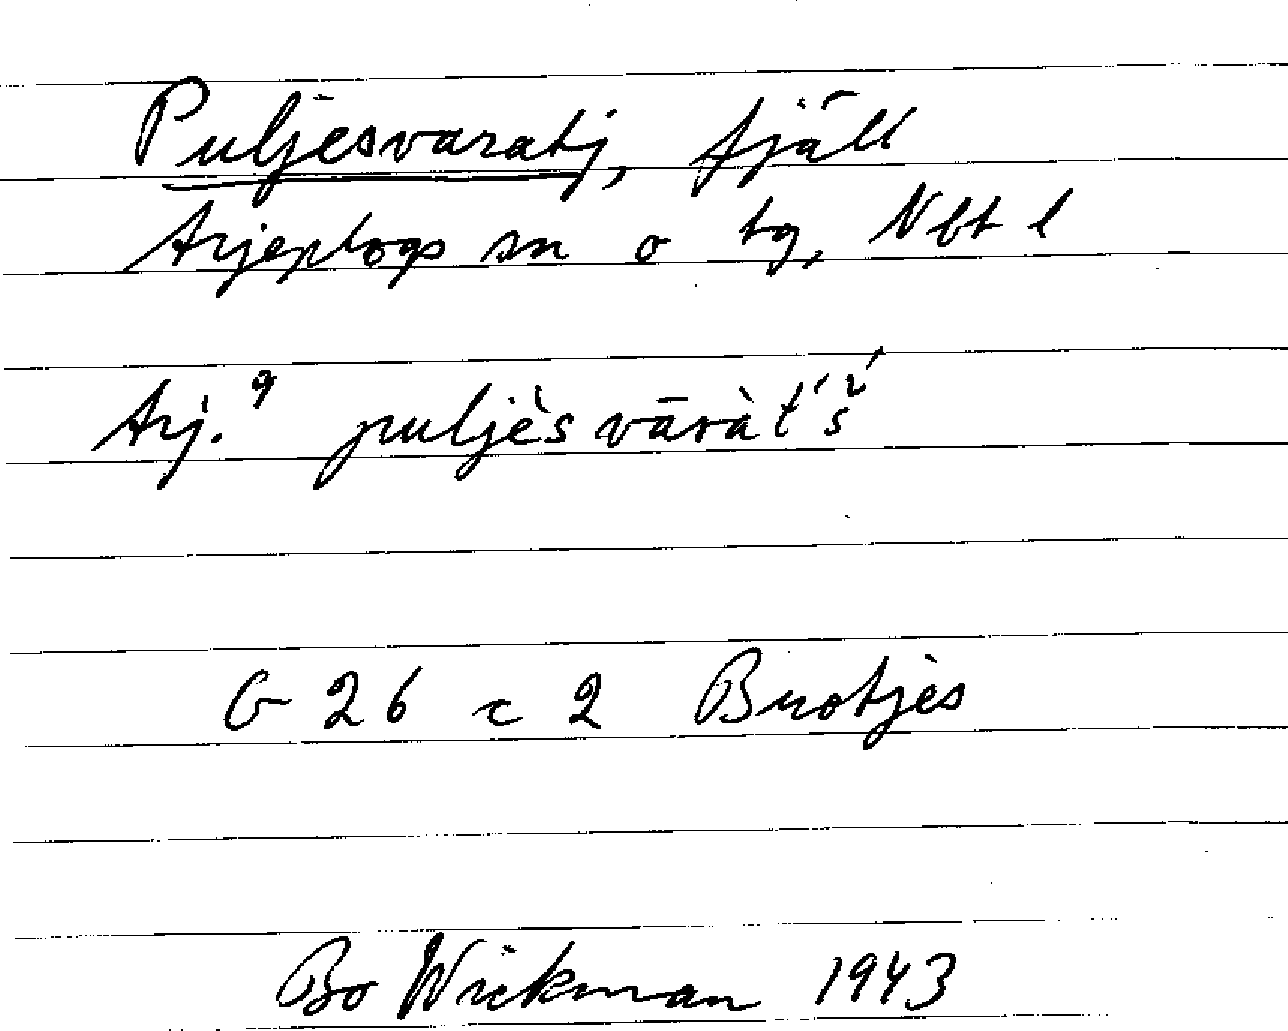 Puljesvaratj, fjäll
Arjeplogs sn o tg, Nbt l
Arj.⁹ puljès vāràt́š́
G 26 c 2 Buotjès
Bo Wickman 1943